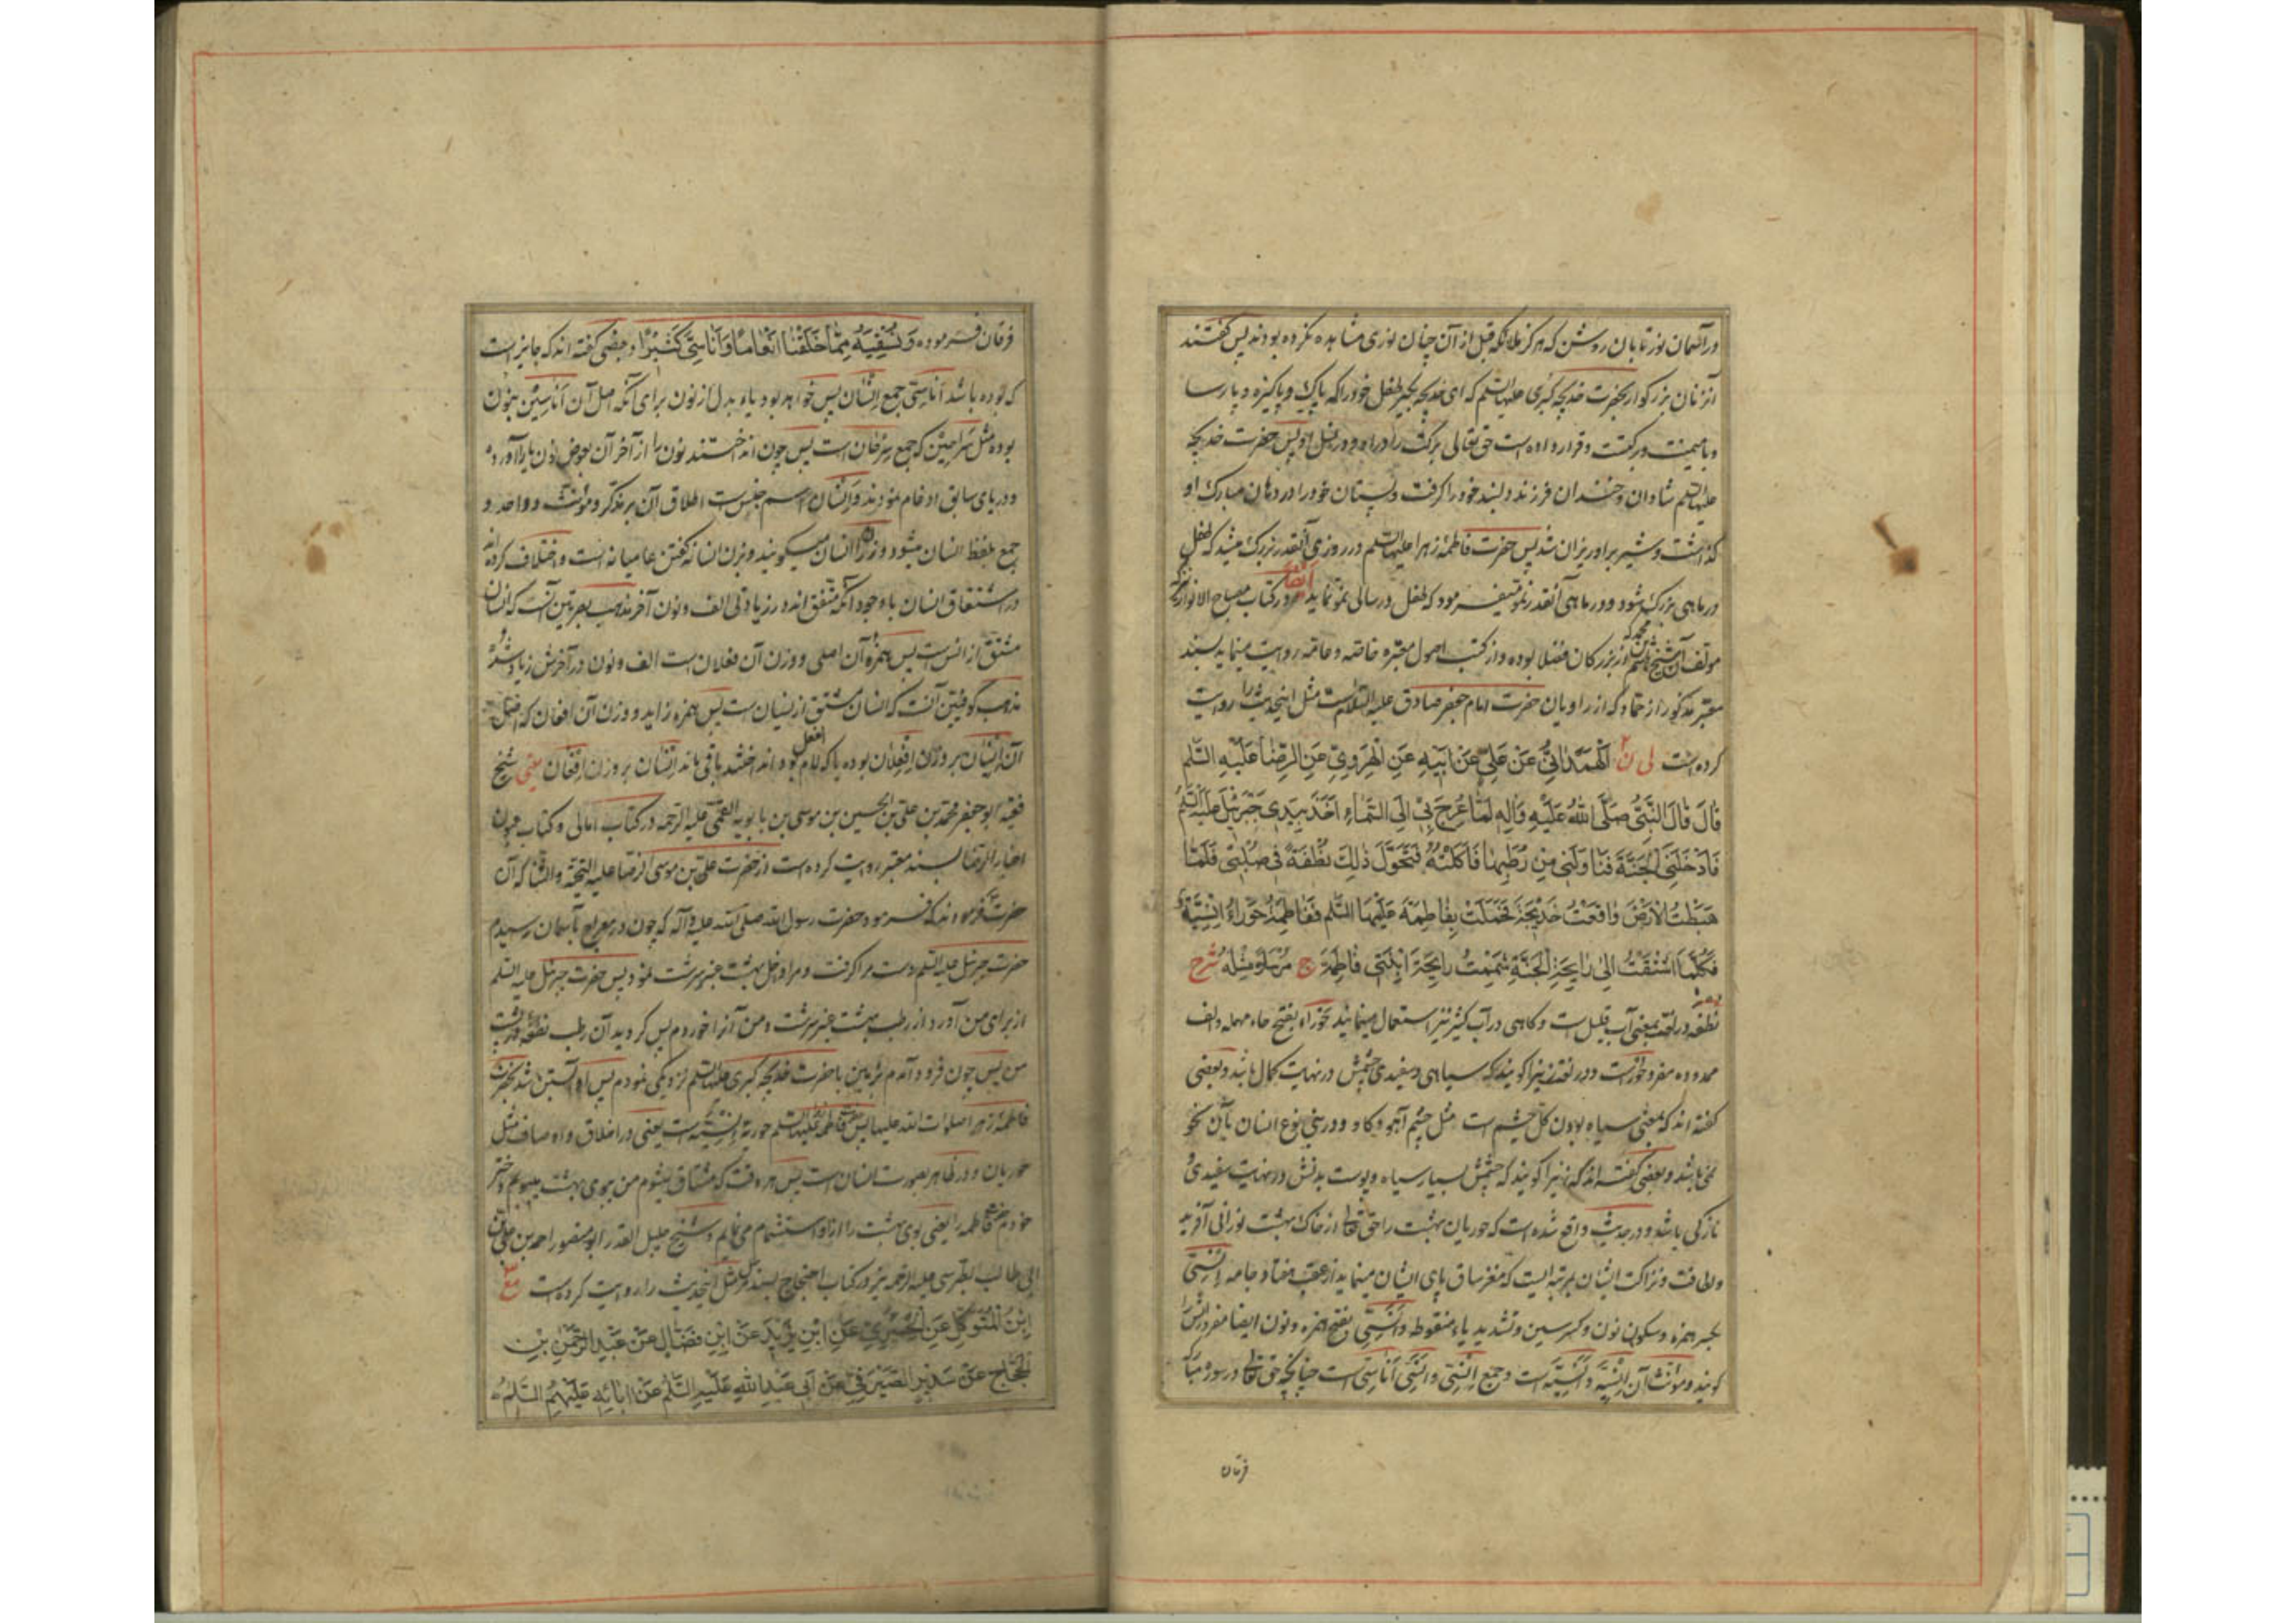 در آسمان نور تابان روشن که هرگز ملائکه قبل از آن چنان نوری مشاهده نکرده بودند پس گفتند
آنزنان بزرکوار بحضرت خدیجه کبری علیها السلم که ای خدیجه بکیر طفل خود را که پاک و پاکیزه و پارسا
و با میمنت و برکتست و قرار داده است حق تعالی برکت را در او و در نسل او پس حضرت خدیجه
علیها السلم شادان و خندان فرزند دلبند خود را کرفت و پستان خود را در دهان مبارک او
کذاشت و شیر بر او ریزان شد پس حضرت فاطمهٔ زهرا علیها السلم در روزی آنقدر بزرک میشد که طفل
در ماهی بزرک شود و در ماهی آنقدر نمو میفرمود که طفل در سالی نمو نماید ایضا در کتاب مصباح الانوار که
مولف آن شیخ هاشم بن محمد که از بزرکان فضلا بوده و از کتب اصول معتبره خاصه و عامه روایت مینماید بسند
معتبر مذکور از حماد که از راویان حضرت امام جعفر صادق علیه السلام است مثل اینحدیث را روایت
کرده است لی ن اَلْهَمَدَانِیُّ عَنْ عَلِیٍّ عَنْ اَبِیهِ عَنِ الْهَرَوِیِّ عَنِ الرِّضَا عَلَیْهِ السَّلم
قَالَ قَالَ النَّبِیُّ صَلَّی اللهُ عَلَیْهِ وَآلِهِ لَمَّا عُرِجَ بِی اِلَی السَّمَاءِ اَخَذَ بِیَدِی جَبْرَئِیلُ عَلَیْهِ السَّلمُ
فَاَدْخَلَنِی الْجَنَّةَ فَنَاوَلَنِی مِنْ رُطَبِهَا فَاَکَلْتُهُ فَتَحَوَّلَ ذٰلِکَ نُطْفَةً فِی صُلْبِی فَلَمَّا
هَبَطْتُ الْاَرْضَ وَاقَعْتُ خَدِیجَةَ فَحَمَلَتْ بِفَاطِمَةَ عَلَیْهَا السَّلم فَفَاطِمَةُ حَوْرَاءُ اِنْسِیَّةٌ
فَکُلَّمَا اشْتَقْتُ اِلٰی رَایِحَةِ الْجَنَّةِ شَمِمْتُ رَایِحَةَ ابْنَتِی فَاطِمَةَ ج مُرْسَلًا مِثْلَهُ شرح
نطفه در لغت بمعنی آب قلیل است و کاهی در آب کثیر نیز استعمال مینمایند حوراء بفتح حاء مهمله و الف
ممدوده مفرد حور است و در لغت زنیرا کویند که سیاهی و سفیدی چشمش در نهایت کمال باشد و بعضی
کفته اند که بمعنی سیاه بودن کل چشم است مثل چشم آهو و کاو و در بنی نوع انسان باین نحو
نمی باشد و بعضی کفته اند که زنیرا کویند که چشمش بسیار سیاه و پوست بدنش در نهایت سفیدی و
نازکی باشد و در حدیث واقع شده است که حوریان بهشت را حق تعالی از خاک بهشت نورانی آفرید
و لطافت و نزاکت ایشان بمرتبه ایست که مغز ساق پای ایشان مینماید از عقب هفتاد جامه اِنْسِیّ
بکسر همزه و سکون نون و کسر سین و تشدید یاء منقوطه و اَنَسِیّ بفتح همزه و نون ایضا مفرد انس را
کویند و مؤنث آن اِنْسِیَّه و اَنَسِیَّه است و جمع اِنْسِیّ و اَنَسِیّ اَنَاسِیّ است چنانچه حق تعالی در سورهٔ
فرقان
فرقان فرموده وَنُسْقِیَهُ مِمَّا خَلَقْنَا اَنْعَامًا وَاَنَاسِیَّ کَثِیرًا و بعضی کفته اند که جایز است
که بوده باشد اَنَاسِیّ جمع اِنْسَان پس خواهد بود یاء بدل از نون برای آنکه اصل آن اَنَاسِیْنَ بنون
بوده مثل سَرَاحِیْن که جمع سِرْحَان است پس چون انداختند نون را از آخر آن بعوض آن یا را آورده
و در یای سابق ادغام نمودند و اِنْسَان اسم جنس است اطلاق آن بر مذکر و مؤنث و واحد و
جمع بلفظ انسان میشود و زن را انسان میکویند و بزن انسانه کفتن عامیانه است و اختلاف کرده اند
در اشتقاق انسان با وجود آنکه متفق اند در زیادتی الف و نون آخر مذهب بصریین آنست که انسان
مشتق از انس است پس همزهٔ آن اصلی و وزن آن فعلان است الف و نون در آخرش زیاد شده و
مذهب کوفیین آنست که انسان مشتق از نسیان است پس همزه زاید و وزن آن افعان که اصل
آن اِنْسِیَان بر وزن اِفْعِلَان بوده یا که لام فعل بود انداختند باقی ماند اِنْسَان بر وزن اِفْعَان یعنی شیخ
فقیه ابو جعفر محمد بن علی بن الحسین بن موسی بن بابویه القمی علیه الرحمه در کتاب امالی و کتاب عیون
اخبار الرضا بسند معتبر روایت کرده است از حضرت علی بن موسی الرضا علیه التحیة و الثنا که آن
حضرت فرمودند که فرمود حضرت رسول الله صلی الله علیه و آله که چون در معراج بآسمان رسیدم
حضرت جبرئیل علیه السلم دست مرا کرفت و مرا داخل بهشت عنبر سرشت نمود پس حضرت جبرئیل علیه السلم
از برای من آورد از رطب بهشت عنبر سرشت و من آنرا خوردم پس کردید آن رطب نطفه در پشت
من پس چون فرود آمدم بزمین با حضرت خدیجه کبری علیها السلم نزدیکی نمودم پس او آبستن شد بحضرت
فاطمهٔ زهرا صلوات الله علیها پس فاطمه علیها السلم حوریهٔ اِنْسِیَّه است یعنی در اخلاق و اوصاف مثل
حوریان و در ظاهر بصورت انسان است پس هر وقت که مشتاق میشوم من ببوی بهشت میبویم دختر
خودم فاطمه را یعنی بوی بهشت را از او استشمام می نمایم و شیخ جلیل القدر ابو منصور احمد بن علی بن
ابی طالب الطبرسی علیه الرحمه نیز در کتاب احتجاج بسند مرسل مثل اینحدیث را روایت کرده است مع
اِبْنُ الْمُتَوَکِّلِ عَنِ الْحِمْیَرِیِّ عَنِ ابْنِ یَزِیدَ عَنِ ابْنِ فَضَّالٍ عَنْ عَبْدِ الرَّحْمٰنِ بْنِ
الْحَجَّاجِ عَنْ سَدِیرٍ الصَّیْرَفِیِّ عَنْ اَبِی عَبْدِ اللهِ عَلَیْهِ السَّلمُ عَنْ اٰبَائِهِ عَلَیْهِمُ السَّلَمُ